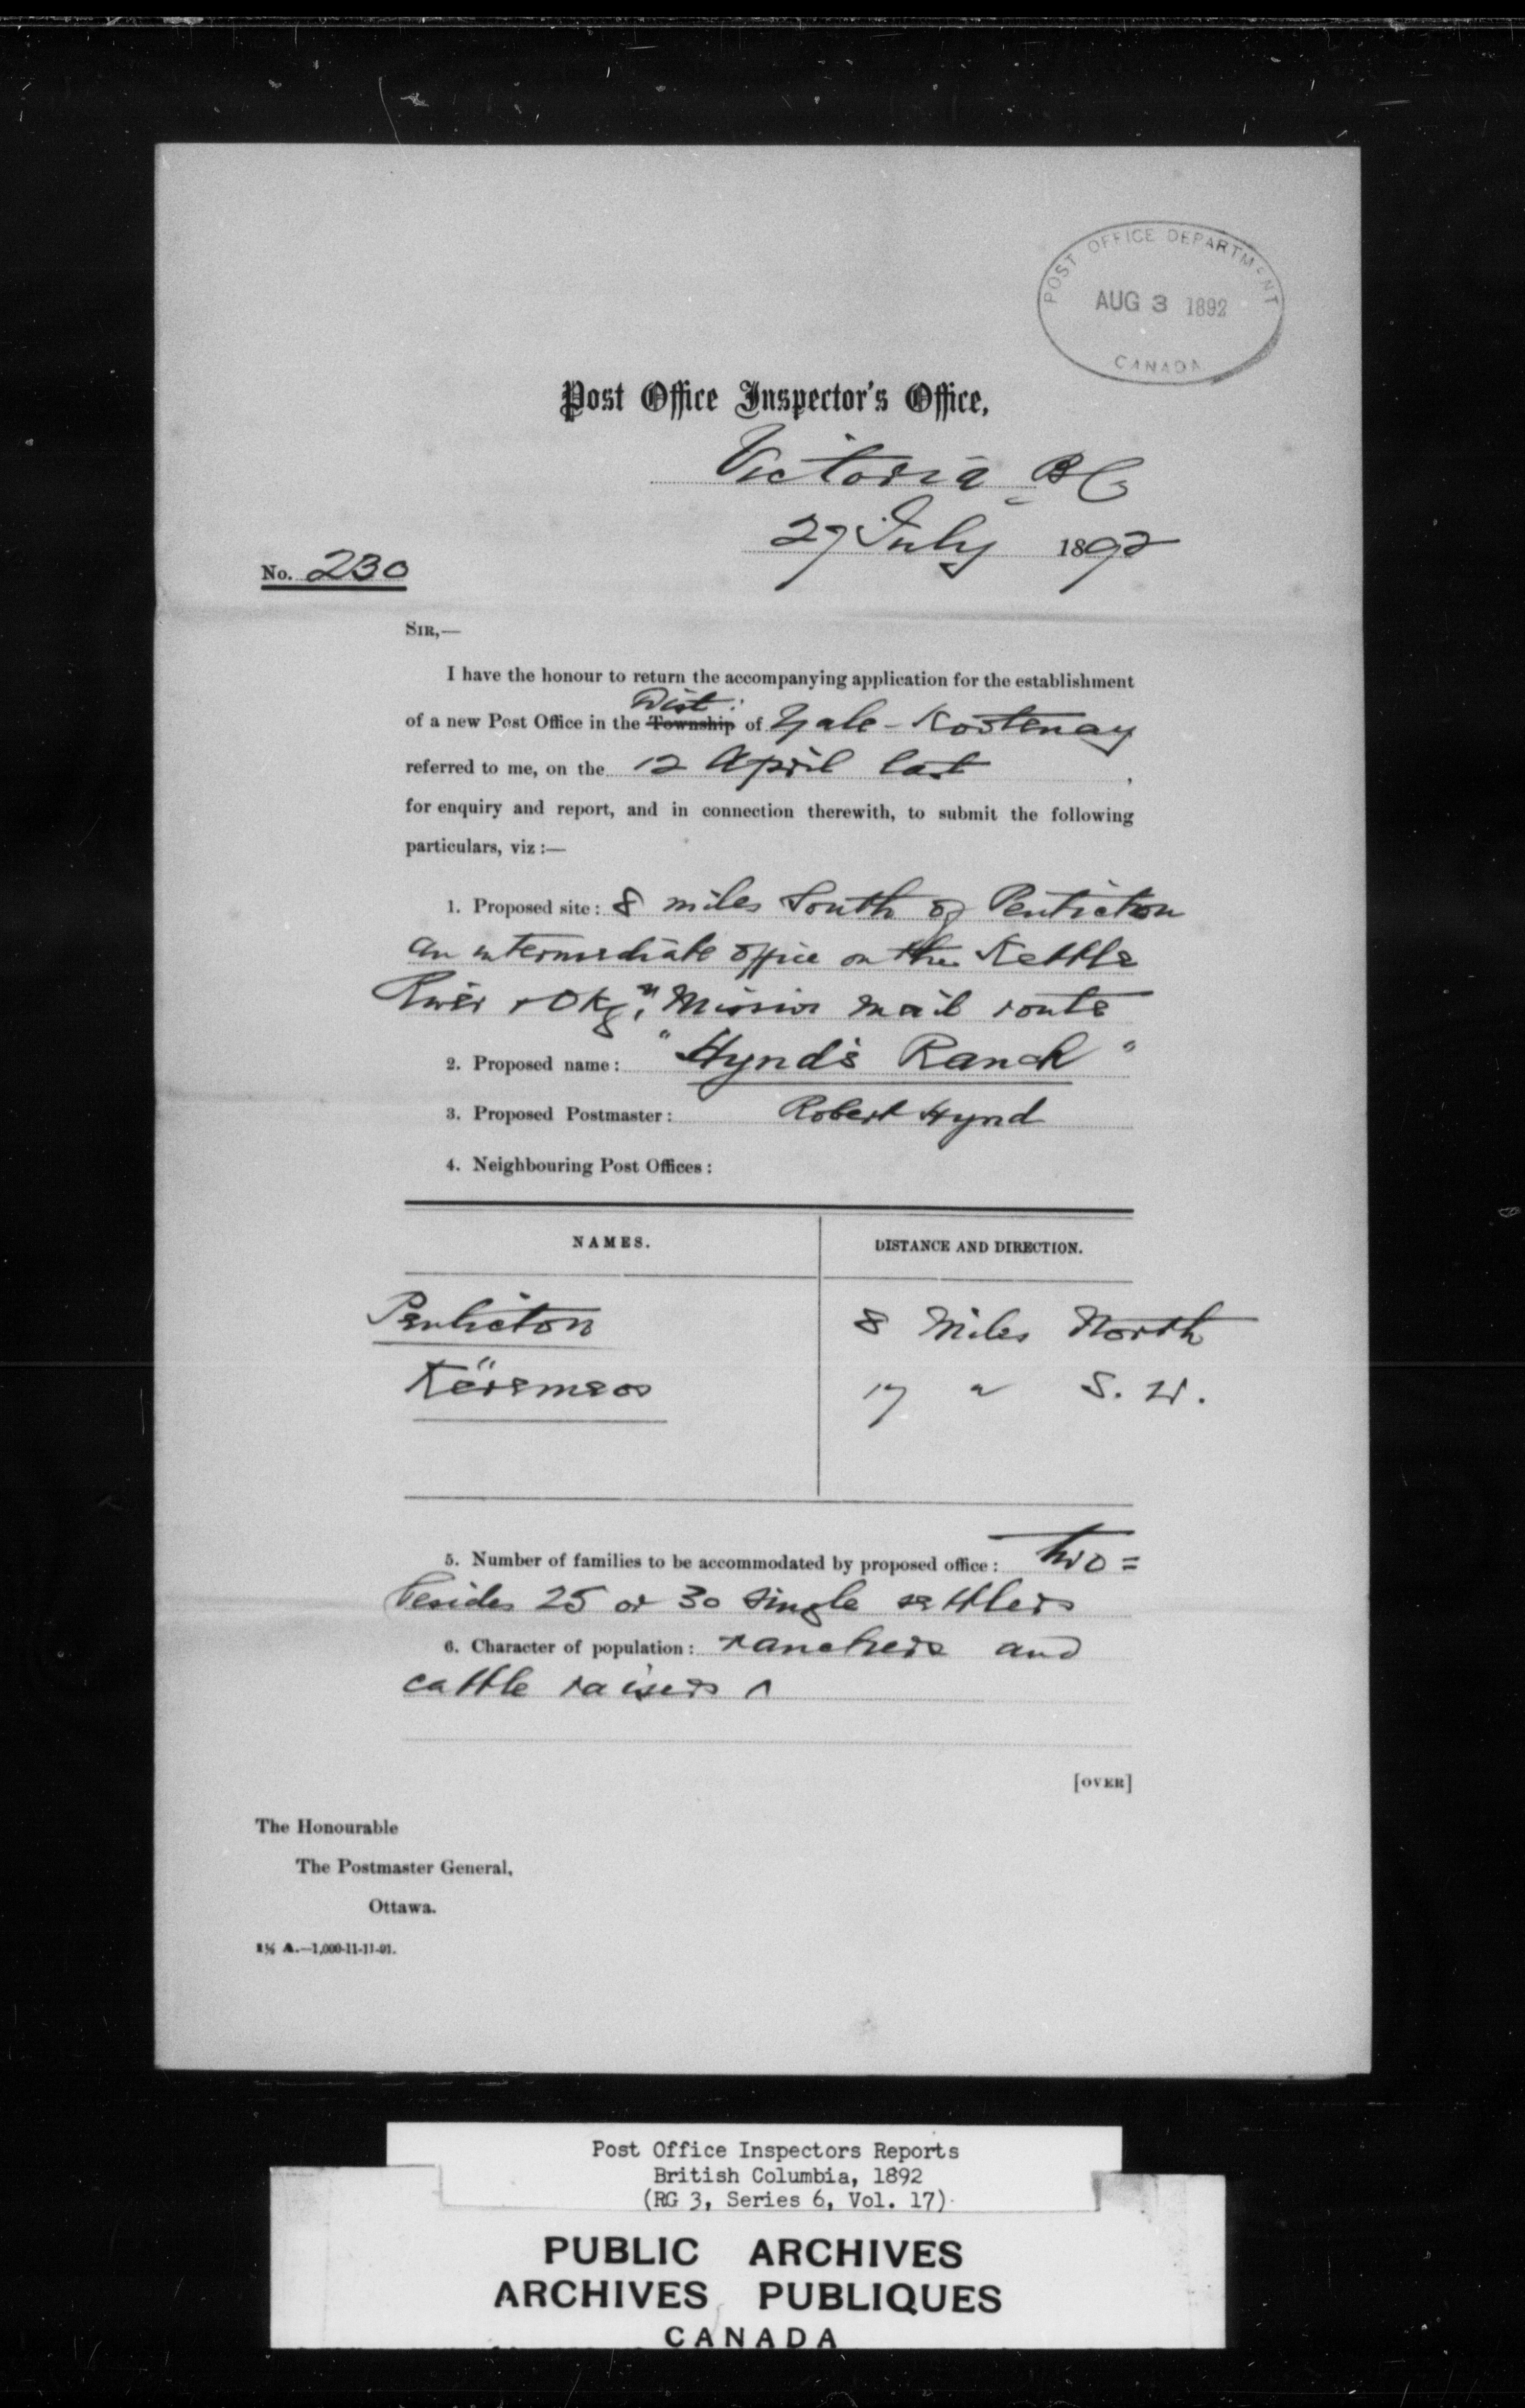 POST OFFICE DEPARTMENT
AUG 3 1892
CANADA
Post Office Inspector's Office,
Victoria BC
27 July 1892
No. 230
SIR,—
I have the honour to return the accompanying application for the establishment
Dist:
of a new Post Office in the Township of Yale-Kootenay
referred to me, on the 12 April last,
for enquiry and report, and in connection therewith, to submit the following
particulars, viz :—
1. Proposed site: 8 miles South of Penticton
an intermediate office on the Kettle
River & Okgn Mission mail route
2. Proposed name: "Hynd's Ranch"
3. Proposed Postmaster: Robert Hynd
4. Neighbouring Post Offices:
NAMES. DISTANCE AND DIRECTION.
Penticton 8 Miles North
Keremeos 17 " S. W.
5. Number of families to be accommodated by proposed office: two =
besides 25 or 30 single settlers
6. Character of population: ranchers and
cattle raisers
[OVER]
The Honourable
The Postmaster General,
Ottawa.
A.—1,000-11-11-91.
Post Office Inspectors Reports
British Columbia, 1892
(RG 3, Series 6, Vol. 17)
PUBLIC ARCHIVES
ARCHIVES PUBLIQUES
CANADA